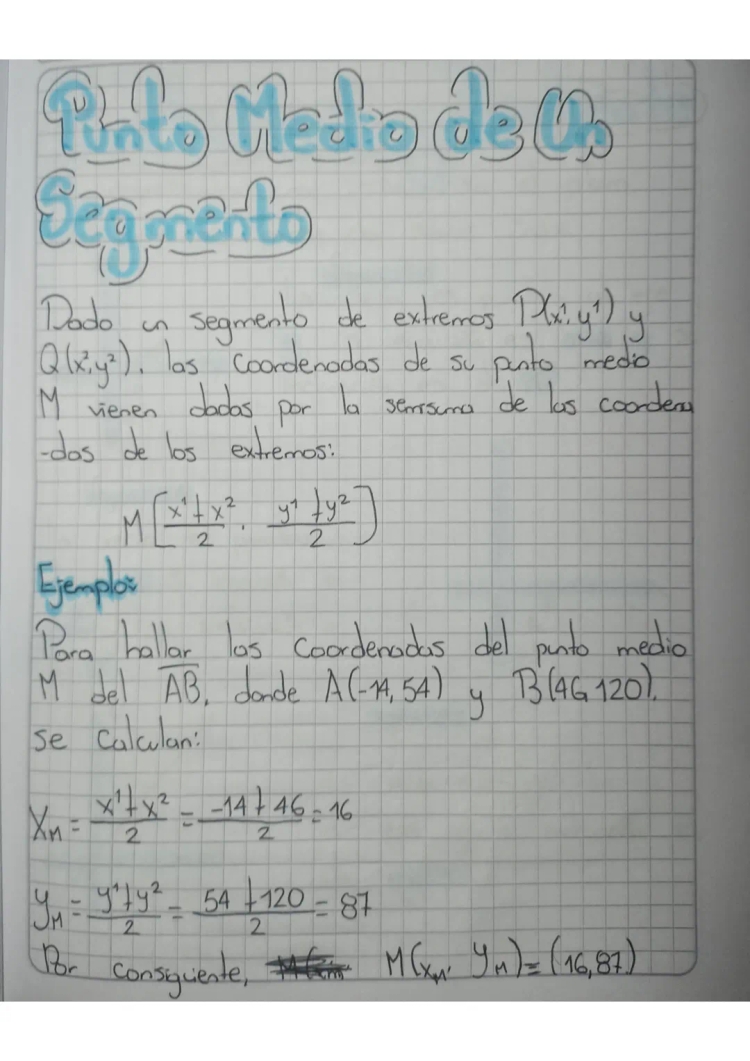 Punto Medio de Un
Segmento
Dado un segmento de extremos P(x¹, y¹) y
Q(x², y²), las Coordenadas de su punto medio
M vienen dadas por la semisuma de las coordena
-das de los extremos:
M[x¹+x²/2, y¹+y²/2]
Ejemplo:
Para hallar las Coordenadas del punto medio
M del A̅B̅, donde A(-14, 54) y B(46, 120),
se Calculan:
X_M = x¹+x²/2 = -14+46/2 = 16
y_M = y¹+y²/2 = 54+120/2 = 87
Por consiguiente, M(x_M, y_M) = (16,87)